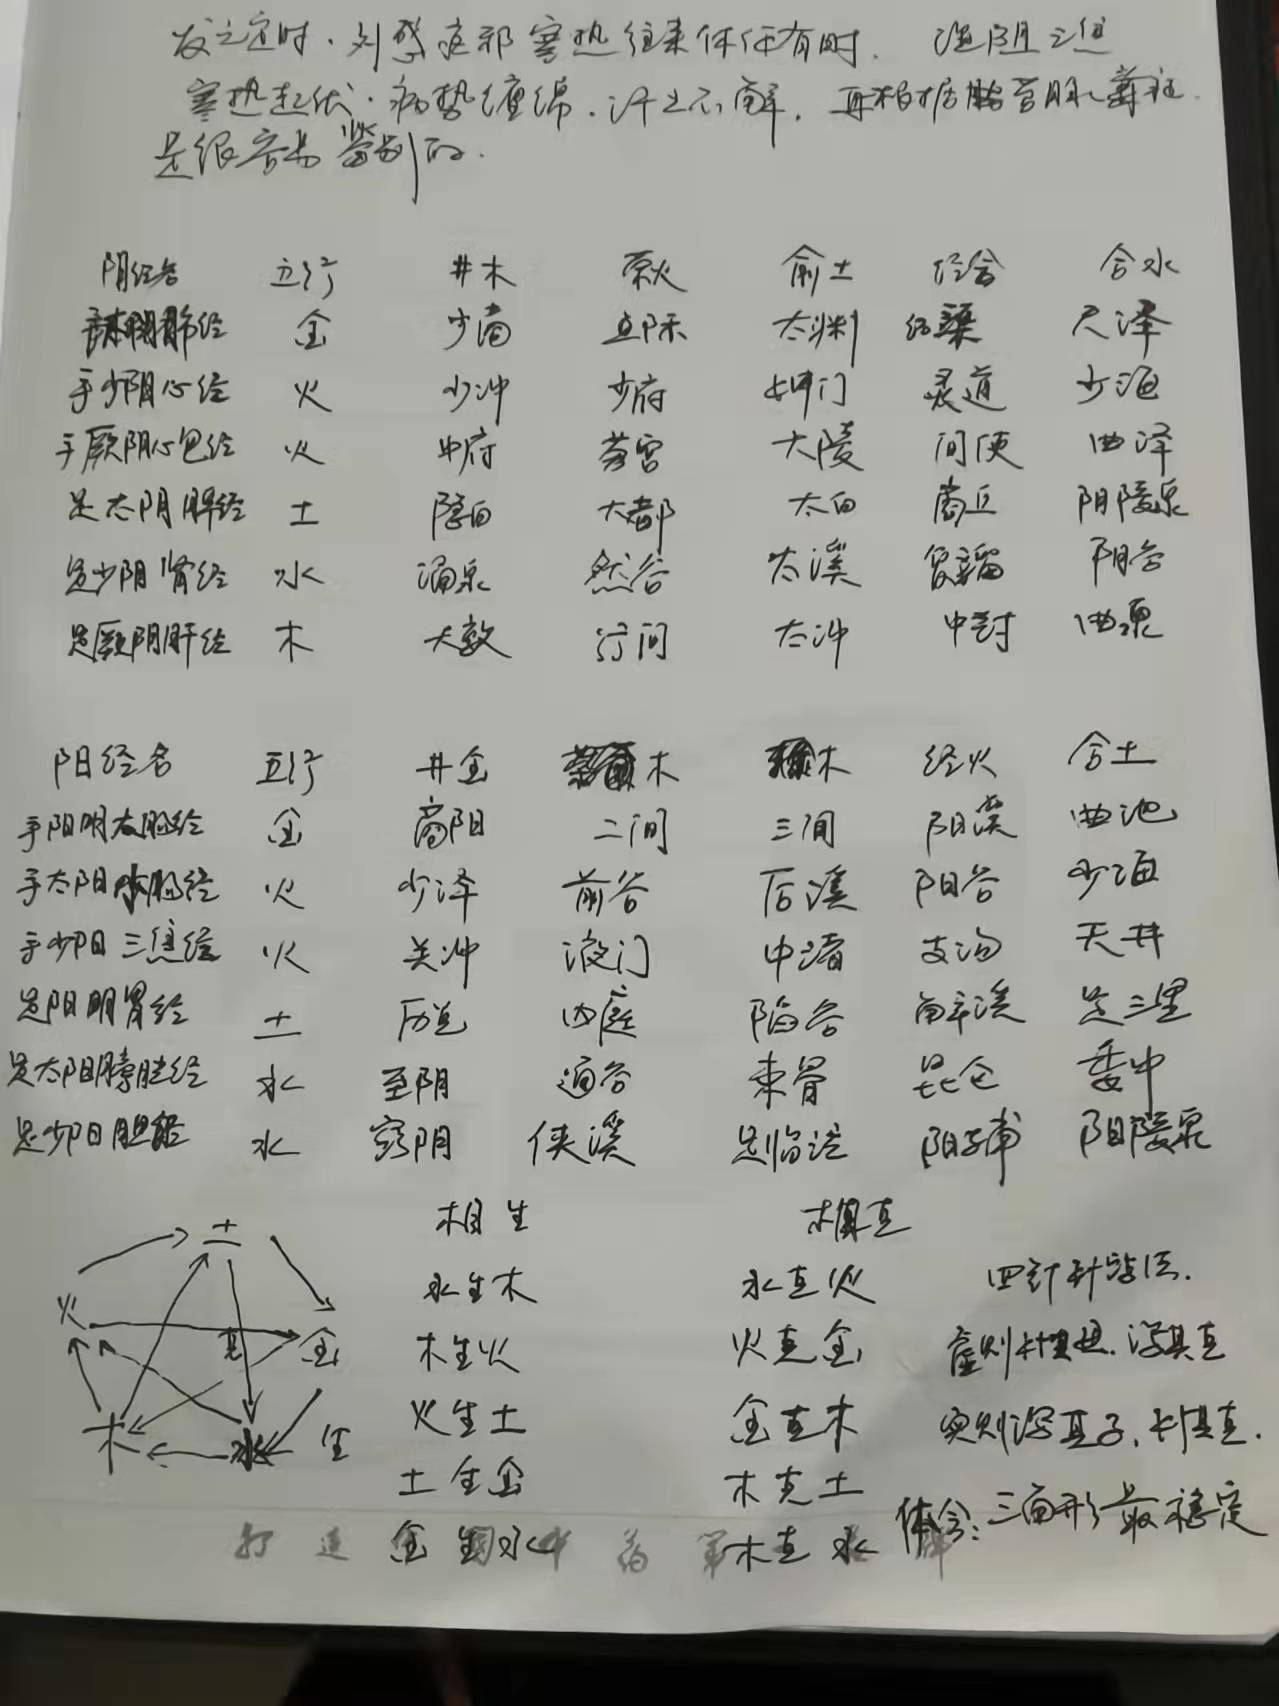 发之定时.
寒热往来休作有时. 湿阻三焦
寒热起伏.病势缠绵.汗之不解.再根据
是很容易鉴别的.
阴经名 五行 井木 荥火 俞土 经金 合水
手太阴肺经 金 少商 鱼际 太渊 经渠 尺泽
手少阴心经 火 少冲 少府 神门 灵道 少海
手厥阴心包经 火 中府 劳宫 大陵 间使 曲泽
足太阴脾经 土 隐白 大都 太白 商丘 阴陵泉
足少阴肾经 水 涌泉 然谷 太溪 复溜 阴谷
足厥阴肝经 木 大敦 行间 太冲 中封 曲泉
阳经名 五行 井金 木 木 经火 合土
手阳明大肠经 金 商阳 二间 三间 阳溪 曲池
手太阳小肠经 火 少泽 前谷 后溪 阳谷 少海
手少阳三焦经 火 关冲 液门 中渚 支沟 天井
足阳明胃经 土 历兑 内庭 陷谷 解溪 足三里
足太阳膀胱经 水 至阴 通谷 束骨 昆仑 委中
足少阳胆经 水 窍阴 侠溪 足临泣 阳辅 阳陵泉
土
火 克 金
木 水 生
相生 相克
水生木 水克火
木生火 火克金
火生土 金克木
土生金 木克土
金生水 木克水
四针针法.
虚则补其母.泻其克
实则泻其子.补其克.
体会:三角形最稳定
打造 中药第 牌